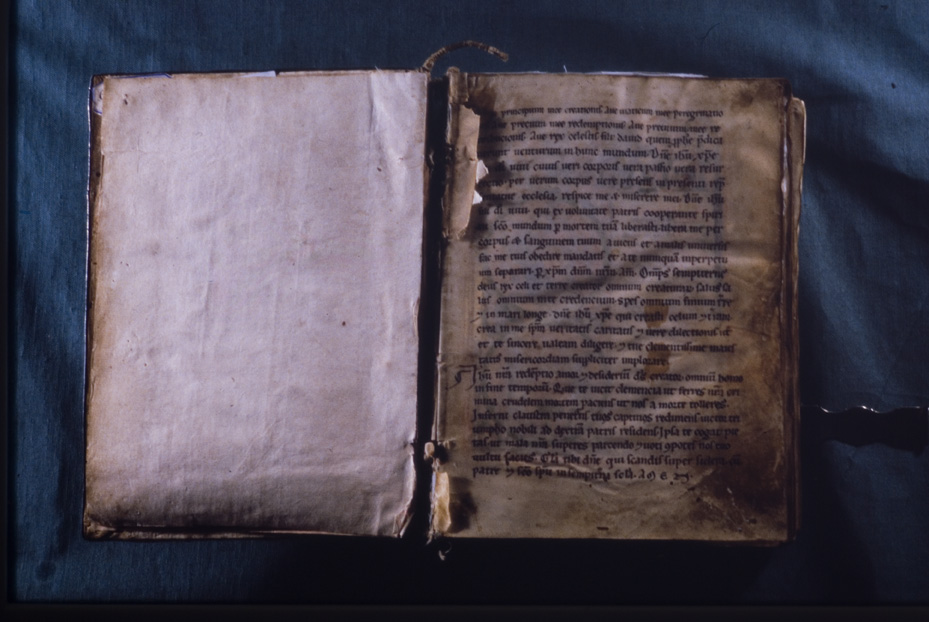 principium mee creationis Aue maximum mee peregrinatio
precium mee redemptionis Aue premium mee re
Aue rex celestis fili dauid quem ꝓphe p̄dica
uenturum in hunc mundum. Dn̄e ihū xp̄e
uiui cuius ueri corporis uera passio uera resur
per uerum corpus uere presens
ecclesia. respice me ⁊ miserere mei. Dn̄e ihū
di uiui qui ex uoluntate patris cooperante spiri
sc̄o mundum ꝑ mortem tuā liberasti. libera me per
corpus et sanguinem tuum a uiciis et a malis uniuersis
fac me tuis obedire mandatis et a te nunquā inperpetu
um separari. ꝑ xp̄m dn̄m nr̄m. Am̄. Om̄ps sempiterne
deus rex celi et terre omnium creaturarum salus
omnium in te credencium. spes omnium finium
⁊ in mari longe. dn̄e ihū xp̄e qui creasti celum ⁊ terram
crea in me spm̄ ueritatis caritatis ⁊ uere dilectionis ut
et te sincere ualeam diligere ⁊ tue clementissime maies
tatis misericordiam suppliciter implorare.
ihū nr̄a redēptio amor ⁊ desiderium ds̄ creator omniū homo
in fine temporum. Que te uicit clemencia ut ferres nr̄a cri
mina crudelem mortem paciens ut nos a morte tolleres.
Inferni claustra penetrans tuos captiuos redimens uictor tri
umpho nobili ad dextram patris residens. Ipsa te cogat pie
tas ut mala nr̄a superes parcendo ⁊ uoti 9potes nos tuo
uultu sacies. Gl̄a tibi dn̄e qui scandis super sidera cū
patre ⁊ sc̄o spū in sempiterna sc̄la. AMEN